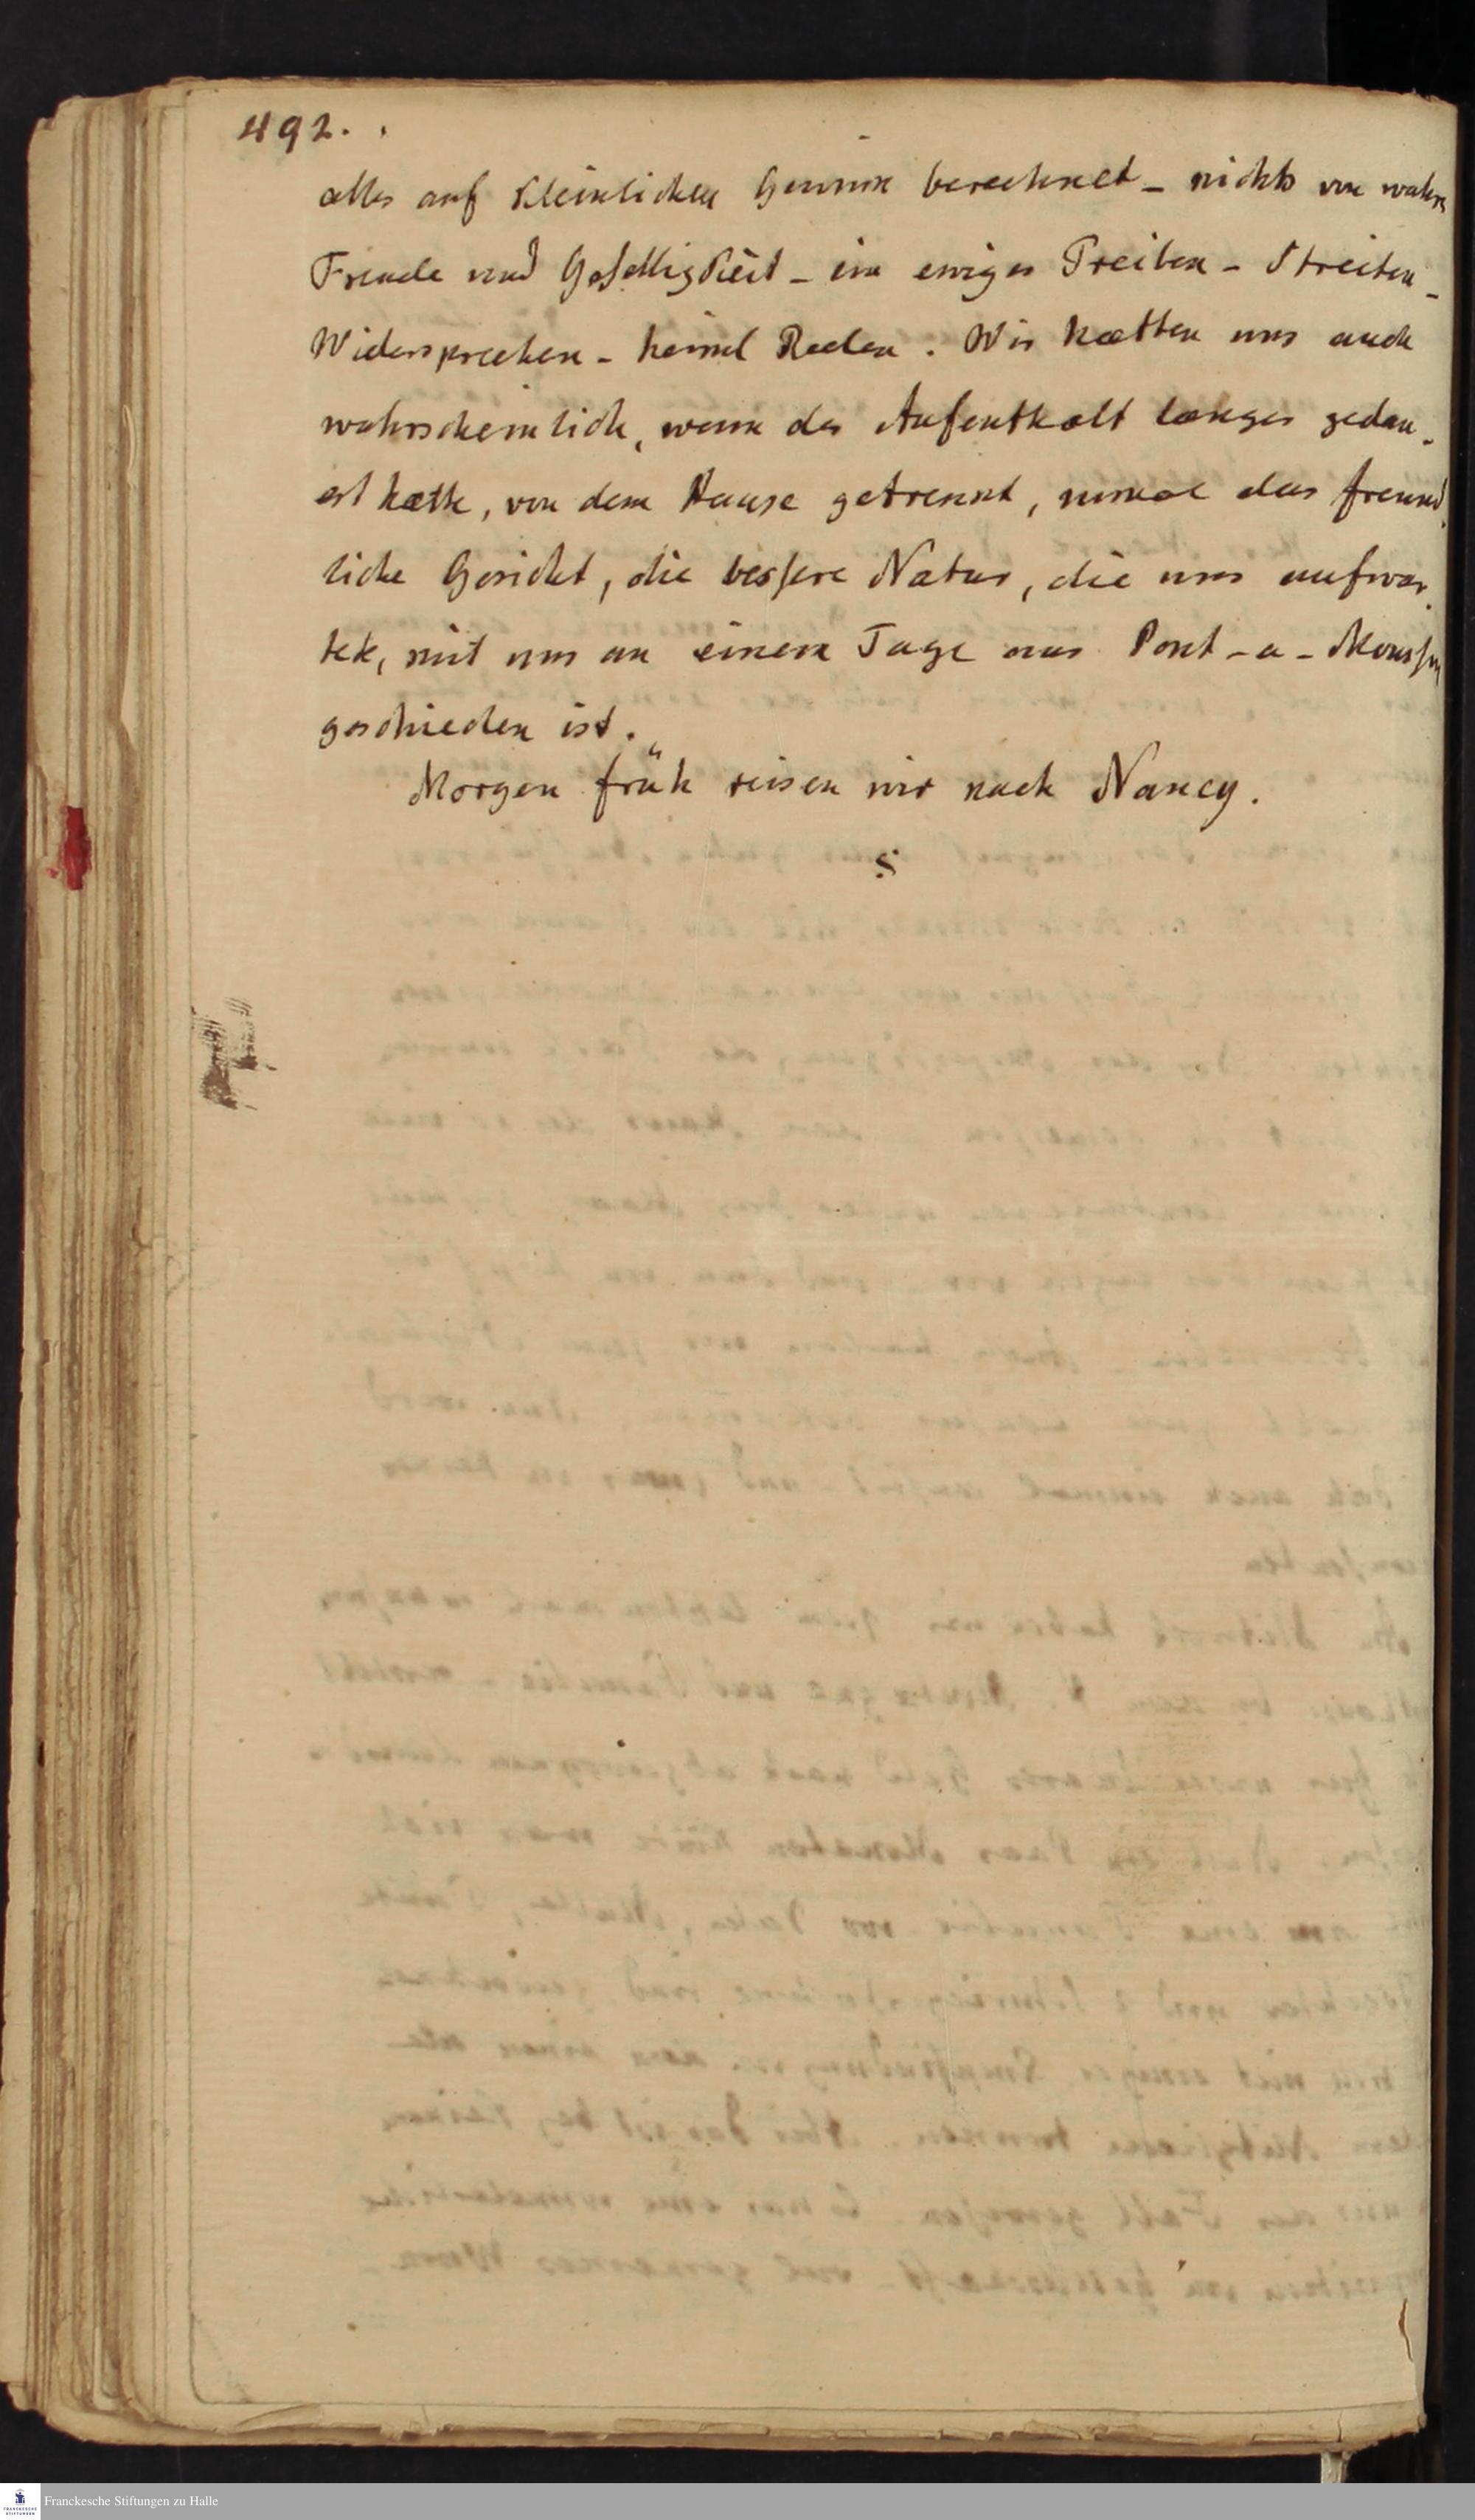 492.
alles auf kleinlichen Gewinn berechnet - nichts von wahrer
Freude und Geselligkeit - ein ewiges Treiben - Streiten -
Widersprechen - keine Reden. Wir hætten uns auch
wahrscheinlich, wenn der Aufenthalt længer gedau-
ert hætte, von dem Hause getrennt, zumal das freund-
liche Gesicht, die bessere Natur, die uns aufwar-
tete, mit uns an einem Tage aus Pont-a-Mousson
geschieden ist.
Morgen früh reisen wir nach Nancy.
Franckesche Stiftungen zu Halle